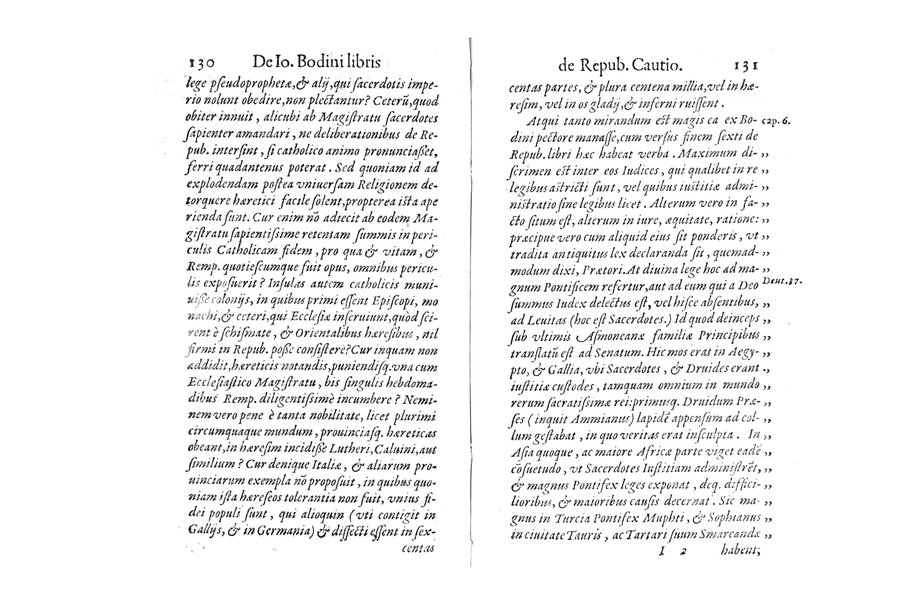 130 De Io. Bodini libris
lege pseudoprophetæ, & alij, qui sacerdotis impe-
rio nolunt obedire, non plectantur? Ceterũ, quod
obiter innuit, alicubi ab Magistratu sacerdotes
sapienter amandari, ne deliberationibus de Re-
pub. intersint, si catholico animo pronunciasset,
ferri quadantenus poterat. Sed quoniam id ad
explodendam postea vniuersam Religionem de-
torquere hæretici facile solent, propterea ista ape
rienda sunt. Cur enim nõ adiecit ab eodem Ma-
gistratu sapientissime retentam summis in peri-
culis Catholicam fidem, pro qua & vitam, &
Remp. quotiescumque fuit opus, omnibus pericu-
lis exposuerit? Insulas autem catholicis muni-
uisse colonijs, in quibus primi essent Episcopi, mo
nachi, & ceteri, qui Ecclesiæ inseruiunt, quòd sci-
rent è schismate, & Orientalibus hæresibus, nil
firmi in Repub. posse consistere? Cur inquam non
addidit, hæreticis notandis, puniendisq. vna cum
Ecclesiastico Magistratu, bis singulis hebdoma-
dibus Remp. diligentissimè incumbere? Nemi-
nem vero pene è tanta nobilitate, licet plurimi
circumquaque mundum, prouinciasq. hæreticas
obeant, in hæresim incidisse Lutheri, Caluini, aut
similium? Cur denique Italiæ, & aliarum pro-
uinciarum exempla nõ proposuit, in quibus quo-
niam ista hæreseos tolerantia non fuit, vnius fi-
dei populi sunt, qui alioquin (vti contigit in
Gallijs, & in Germania) & dissecti essent in sex-
centas
de Repub. Cautio. 131
centas partes, & plura centena millia, vel in hæ-
resim, vel in os gladij, & inferni ruissent.
Atqui tanto mirandum est magis ea ex Bo- cap. 6.
dini pectore manasse, cum versus finem sexti de
Repub. libri hæc habeat verba. Maximum di- „
scrimen est inter eos Iudices, qui qualibet in re „
legibus astricti sunt, vel quibus iustitiæ admi- „
nistratio sine legibus licet. Alterum vero in fa- „
cto situm est, alterum in iure, æquitate, ratione: „
præcipue vero cum aliquid eius sit ponderis, vt „
tradita antiquitus lex declaranda sit, quemad- „
modum dixi, Prætori. At diuina lege hoc ad ma- „
gnum Pontificem refertur, aut ad eum qui a Deo Deut. 17.
summus Iudex delectus est, vel hisce absentibus, „
ad Leuitas (hoc est Sacerdotes.) Id quod deinceps „
sub vltimis Asmoneanæ familiæ Principibus „
translatũ est ad Senatum. Hic mos erat in Aegy- „
pto, & Gallia, vbi Sacerdotes, & Druides erant „
iustitiæ custodes, tamquam omnium in mundo „
rerum sacratissimæ rei: primusq. Druidum Præ- „
ses (inquit Ammianus) lapidẽ appensum ad col- „
lum gestabat, in quo veritas erat insculpta. In „
Asia quoque, ac maiore Africæ parte viget eadẽ „
cõsuetudo, vt Sacerdotes Iustitiam administrẽt, „
& magnus Pontifex leges exponat, deq. diffici- „
lioribus, & maioribus causis decernat. Sic ma- „
gnus in Turcia Pontifex Muphti, & Sophianus „
in ciuitate Tauris, ac Tartari suum Smarcandæ „
I 2 habent;